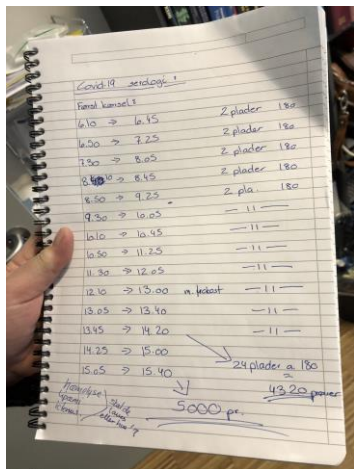 Covid-19 serologi:
6.10 → 6.45 2 plader 180
6.50 → 7.25 2 plader 180
7.30 → 8.05 2 plader 180
8.10 → 8.45 2 plader 180
8.50 → 9.25 2 pla. 180
9.30 → 10.05 — 11 —
10.10 → 10.45 — 11 —
10.50 → 11.25 — 11 —
11.30 → 12.05 — 11 —
12.10 → 13.00 m. frokost — 11 —
13.05 → 13.40 — 11 —
13.45 → 14.20
14.25 → 15.00 24 plader a 180
15.05 → 15.40 4320 prøver
5000 pr.